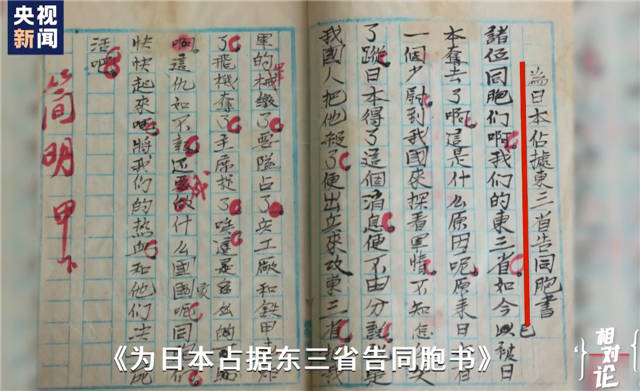 央视新闻
為日本佔據東三省告同胞書
諸位同胞们啊我们的東三省如今已被日
本奪去了啊這是什么原因呢原來日
一個少尉到我國來探看軍情不知怎
了蹤日本得了這個消息便不由分
我國人把他殺了便出兵來攻東三省
軍的械繳了要隘占了兵工厰和鉄甲車
了飛機奪了主席捉了唉這是
啊這仇如不報还要做什么國呢同
快快起來吧將我们的热血和他们去
活吧
简明 甲下
《为日本占据东三省告同胞书》
相对论